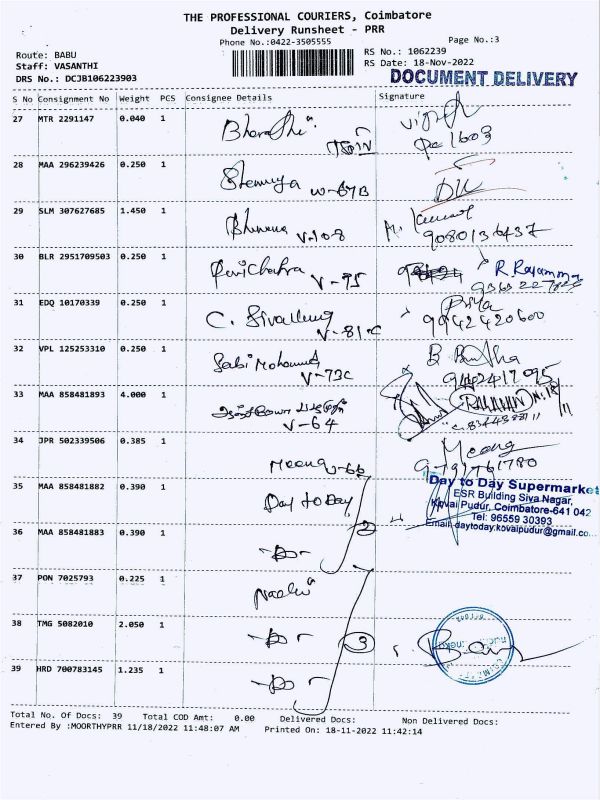 THE PROFESSIONAL COURIERS, Coimbatore
Delivery Runsheet - PRR
Phone No.:0422-3505555
Page No.:3
Route: BABU
RS No.: 1062239
Staff: VASANTHI
RS Date: 18-Nov-2022
DRS No.: DCJB106223903
DOCUMENT DELIVERY
S No Consignment No Weight PCS Consignee Details Signature
27 MTR 2291147 0.040 1 Bharathi
28 MAA 296239426 0.250 1 W-67B
29 SLM 307627685 1.450 1 V-108 9080136437
30 BLR 2951709503 0.250 1 V-75 R Rajamma
31 EDQ 10170339 0.250 1 C. V-81-C Priya
9942420600
32 VPL 125253310 0.250 1 V-73C
9442417095
33 MAA 858481893 4.000 1 V-64
34 JPR 502339506 0.385 1 Moong V-66 Moong
9791761780
35 MAA 858481882 0.390 1 Day to Day
36 MAA 858481883 0.390 1 -Do- 2
Day to Day Supermarket
ESR Building Siva Nagar,
Kovai Pudur, Coimbatore-641 042
Tel: 96559 30393
Email: daytoday.kovaipudur@gmail.co...
37 PON 7025793 0.225 1
38 TMG 5082010 2.050 1 -Do- 3
39 HRD 700783145 1.235 1 -Do-
Total No. Of Docs: 39 Total COD Amt: 0.00 Delivered Docs: Non Delivered Docs:
Entered By :MOORTHYPRR 11/18/2022 11:48:07 AM Printed On: 18-11-2022 11:42:14